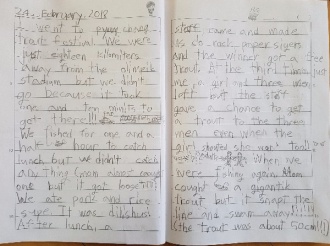 24. February. 2018
I went to
trout festival. We were
just eighteen kilomiters
away from the olimpick
stadium, but we didn't
go because it took
one and ten minits to
get there!!!
We fished for one and a
half hour to catch
lunch but we didn't catch
any thing (mom almost caught
one but it got
We ate pork and rice
supe. It was dilishuss.
After lunch, a
staff came and made
us do rock paper sisers
and the winner got a free
trout. At the third time just
me, a girl and three men
left but the staff
gave a chance to get
a trout to the three
men even when the
girl showted she want too!!
When we
were fishing again, Adam
caught a gigantik
trout but it snapt the
line and swam away!!!!
(the trout was about 50cm!!!)